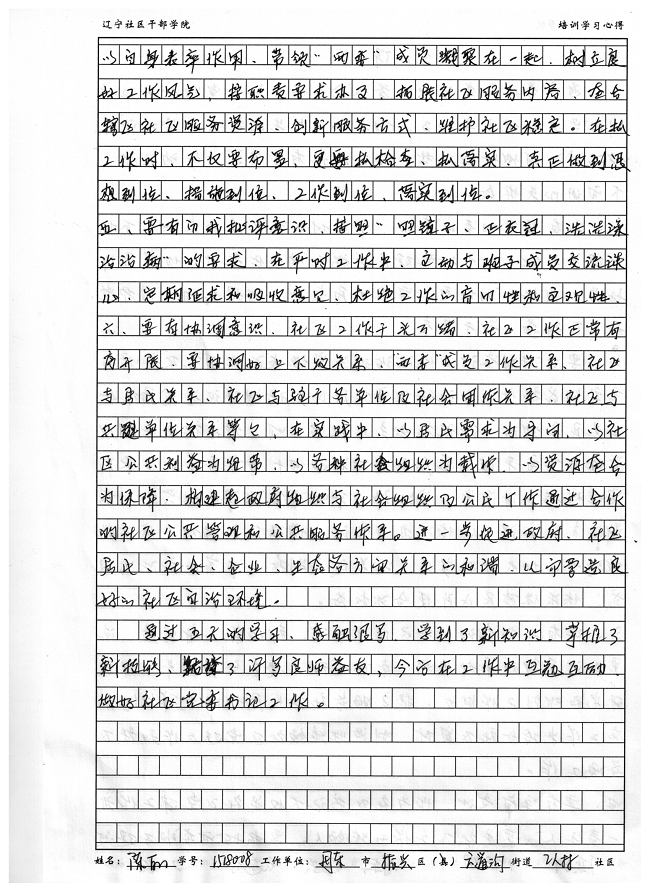 辽宁社区干部学院 培训学习心得
以自身表率作用、带领“两委”成员凝聚在一起、树立良
好工作风气，按职责要求办事，拓展社区服务内容，整合
辖区社区服务资源、创新服务方式、维护社区稳定。在抓
工作时、不仅要布置、更要抓检查、抓落实、真正做到思
想到位、措施到位、工作到位、落实到位。
五、要有自我批评意识、按照“照镜子、正衣冠、洗洗澡
治治病”的要求、在平时工作中、主动与班子成员交流谈
心、定期征求和吸收意见、杜绝工作的盲目性和主观性。
六、要有协调意识、社区工作千头万绪、社区工作正常有
序开展、要协调好上下级关系、“两委”成员工作关系、社区
与居民关系、社区与驻区各单位及社会团体关系、社区与
共建单位关系等等，在实践中、以居民需求为导向、以社
区公共利益为纽带、以各种社会组织为载体、以资源整合
为保障、构建起政府组织与社会组织及公民个体通过合作
的社区公共管理和公共服务体系。进一步促进政府、社区
居民、社会、企业、生态各方面关系的和谐，从而营造良
好的社区自治环境。
通过五天的学习、感触很多、学到了新知识、掌握了
新技能、结识了许多良师益友，今后在工作中互勉互励、
做好社区党委书记工作。
姓名： 学号：158008 工作单位：丹东 市 振兴 区（县） 六道沟 街道 社区